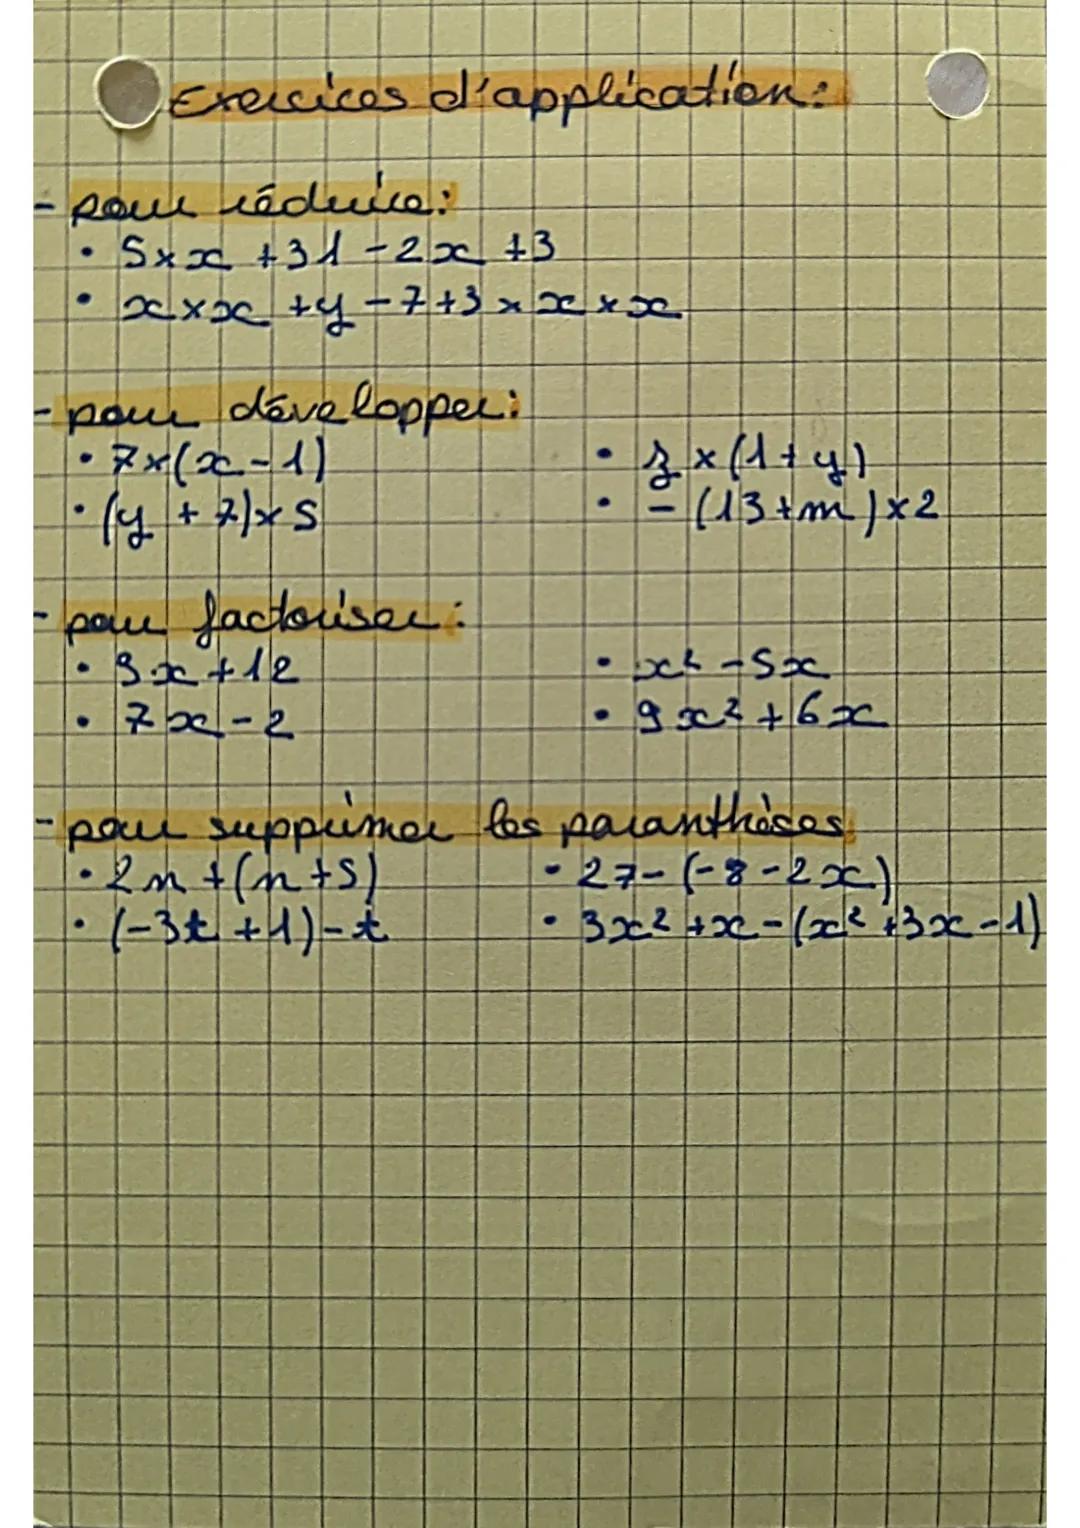 Exercices d'application:
- pour réduire:
• 5×x +31 -2x +3
• x×x +y -7+3×x×x
- pour développer:
• 7×(x-1)
• z×(1+y)
• (y+7)×5
• -(13+m)×2
- pour factoriser:
• 3x+12
• x²-5x
• 7x-2
• 9x²+6x
- pour supprimer les paranthèses
• 2n+(n+5)
• 27-(-8-2x)
• (-3t+1)-t
• 3x²+x-(x²+3x-1)